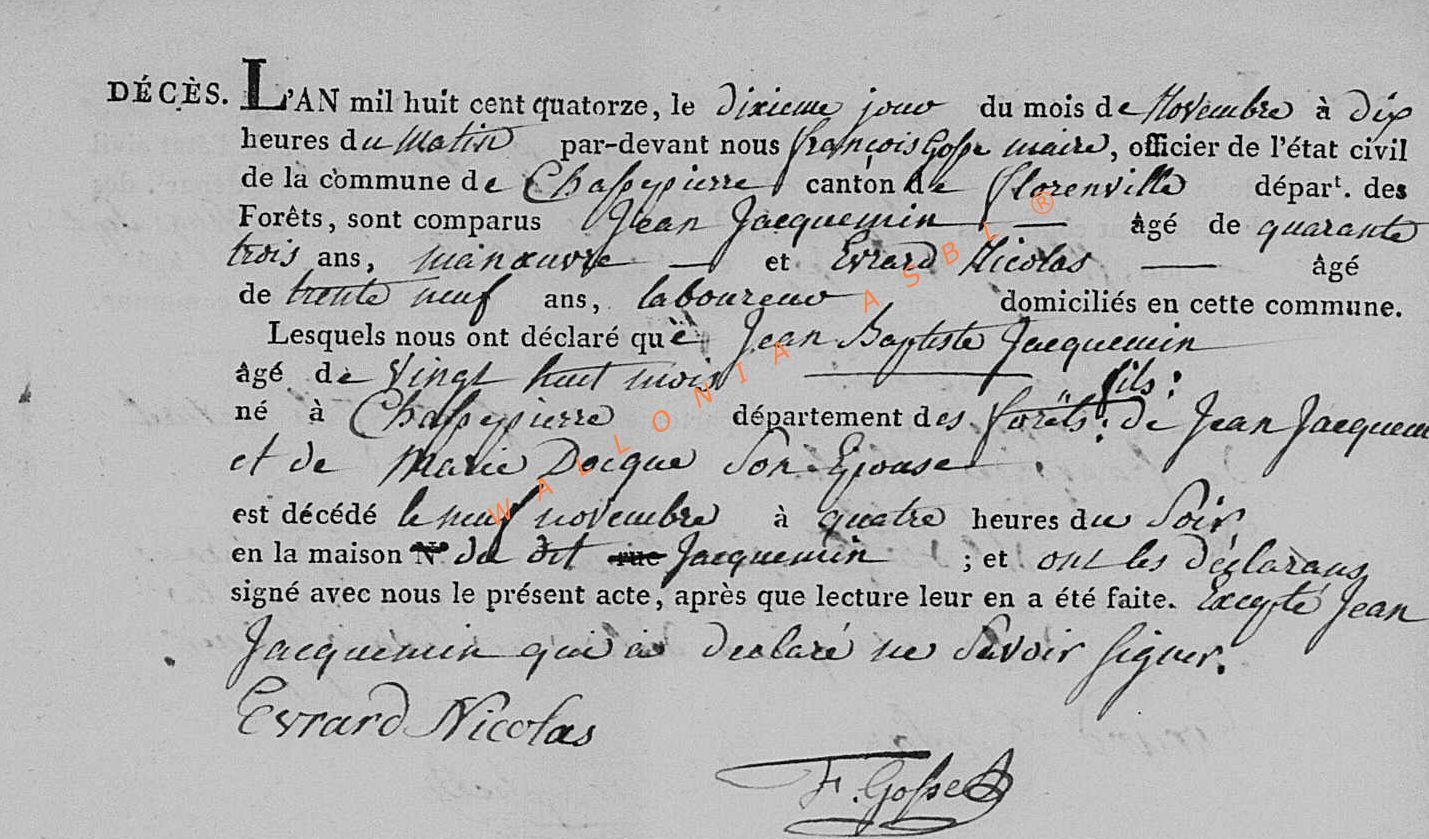 DÉCÈS. L'AN mil huit cent quatorze, le dixieme jour du mois de Novembre à dix
heures du Matin par-devant nous françois Gosse maire, officier de l'état civil
de la commune de Chassepierre canton de florenville départ. des
Forêts, sont comparus Jean Jacquemin — âgé de quarante
trois ans, manœuvre — et Evrard Nicolas — âgé
de trente neuf ans, laboureur domiciliés en cette commune.
Lesquels nous ont déclaré que Jean Baptiste Jacquemin
âgé de Vingt huit mois —
fils:
né à Chassepierre département des forêts: de Jean Jacquemin
et de Marie Docque Son Epouse
est décédé le neuf novembre à quatre heures du Soir
en la maison N° du dit rue Jacquemin ; et ont les déclarans
signé avec nous le présent acte, après que lecture leur en a été faite. Excepté Jean
Jacquemin qui a declaré ne Savoir signer.
Evrard Nicolas
F. Gosse
WALLONIA ASBL ®